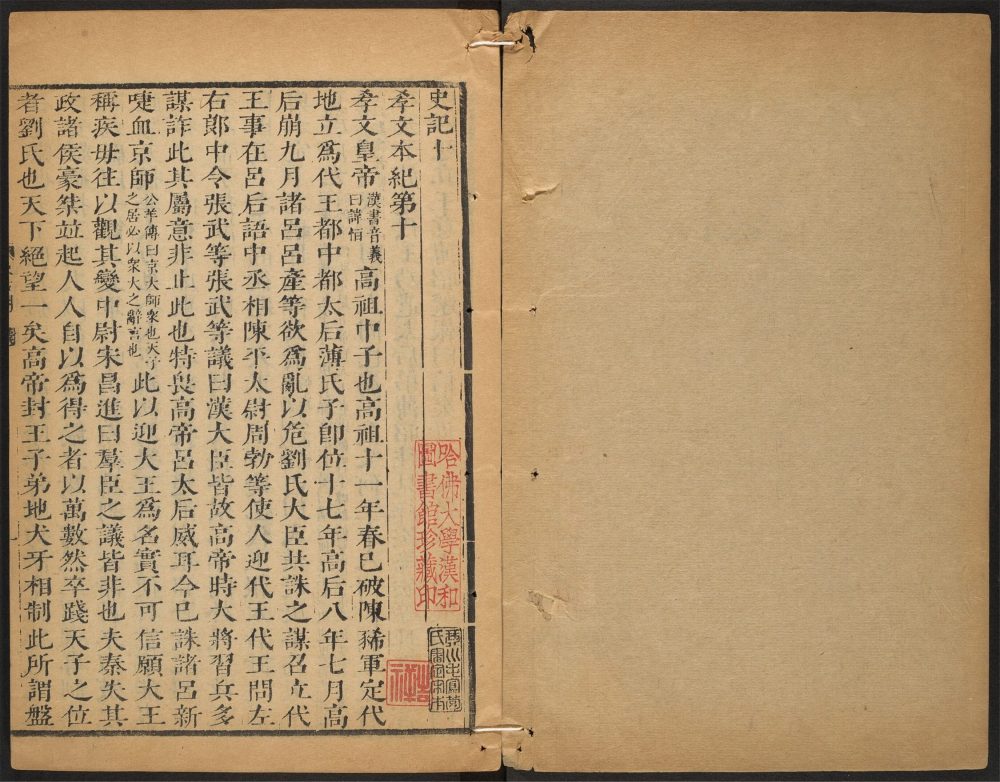 史記十
孝文本紀第十
孝文皇帝漢書音義曰諱恒高祖中子也高祖十一年春已破陳豨軍定代
地立爲代王都中都太后薄氏子卽位十七年高后八年七月高
后崩九月諸呂呂產等欲爲亂以危劉氏大臣共誅之謀召立代
王事在呂后語中丞相陳平太尉周勃等使人迎代王代王問左
右郞中令張武等張武等議曰漢大臣皆故高帝時大將習兵多
謀詐此其屬意非止此也特畏高帝呂太后威耳今已誅諸呂新
啑血京師公羊傳曰京大師衆也天子之居必以衆大之辭言也此以迎大王爲名實不可信願大王
稱疾毋往以觀其變中尉宋昌進曰羣臣之議皆非也夫秦失其
政諸侯豪桀並起人人自以爲得之者以萬數然卒踐天子之位
者劉氏也天下絕望一矣高帝封王子弟地犬牙相制此所謂盤
哈佛大學漢和
圖書館珍藏印